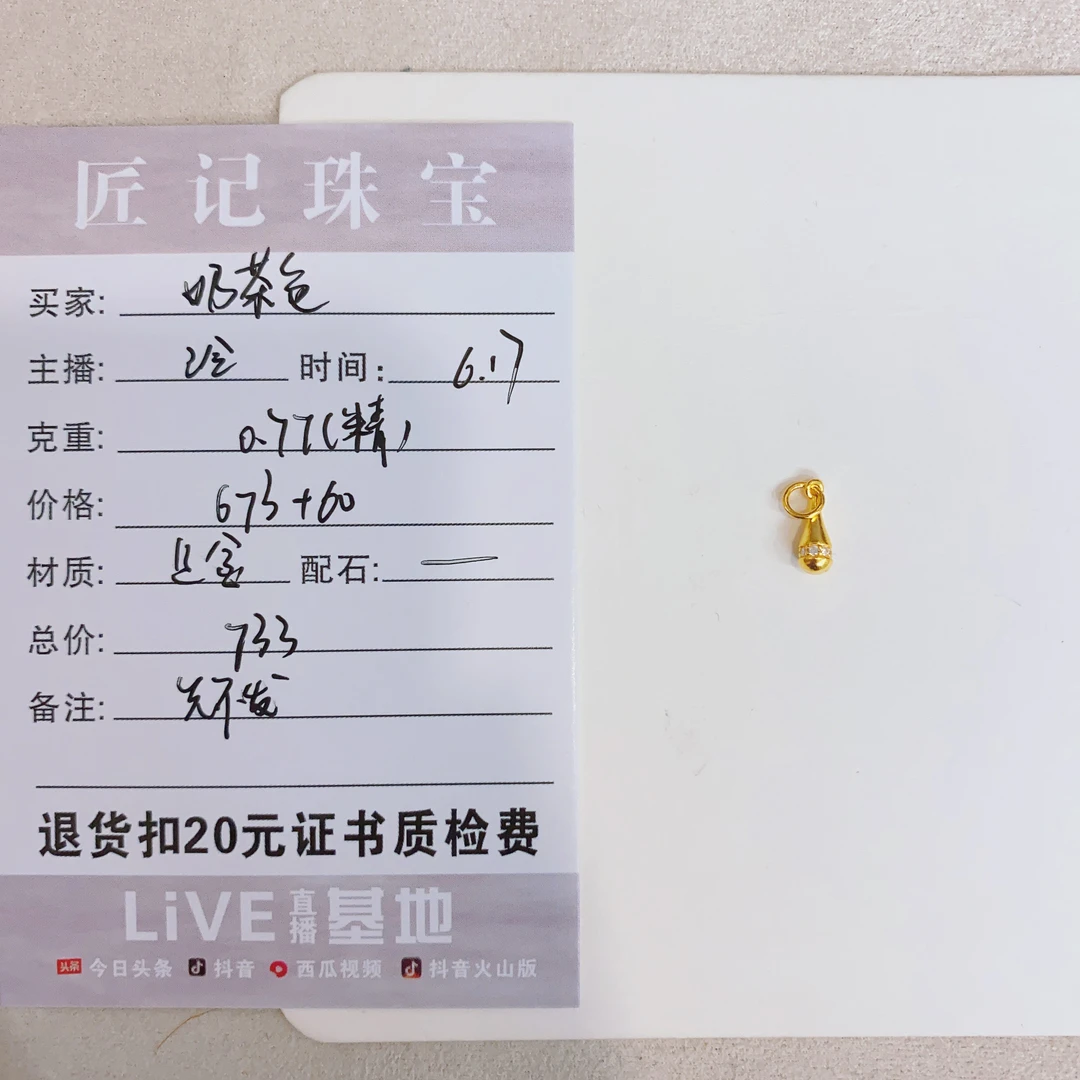 匠记珠宝
买家: 奶茶色
主播: 时间: 6.17
克重: 0.77(精)
价格: 673+60
材质: 足金 配石: 一
总价: 733
备注: 先不发
退货扣20元证书质检费
LiVE直播基地
头条 今日头条 抖音 西瓜视频 抖音火山版